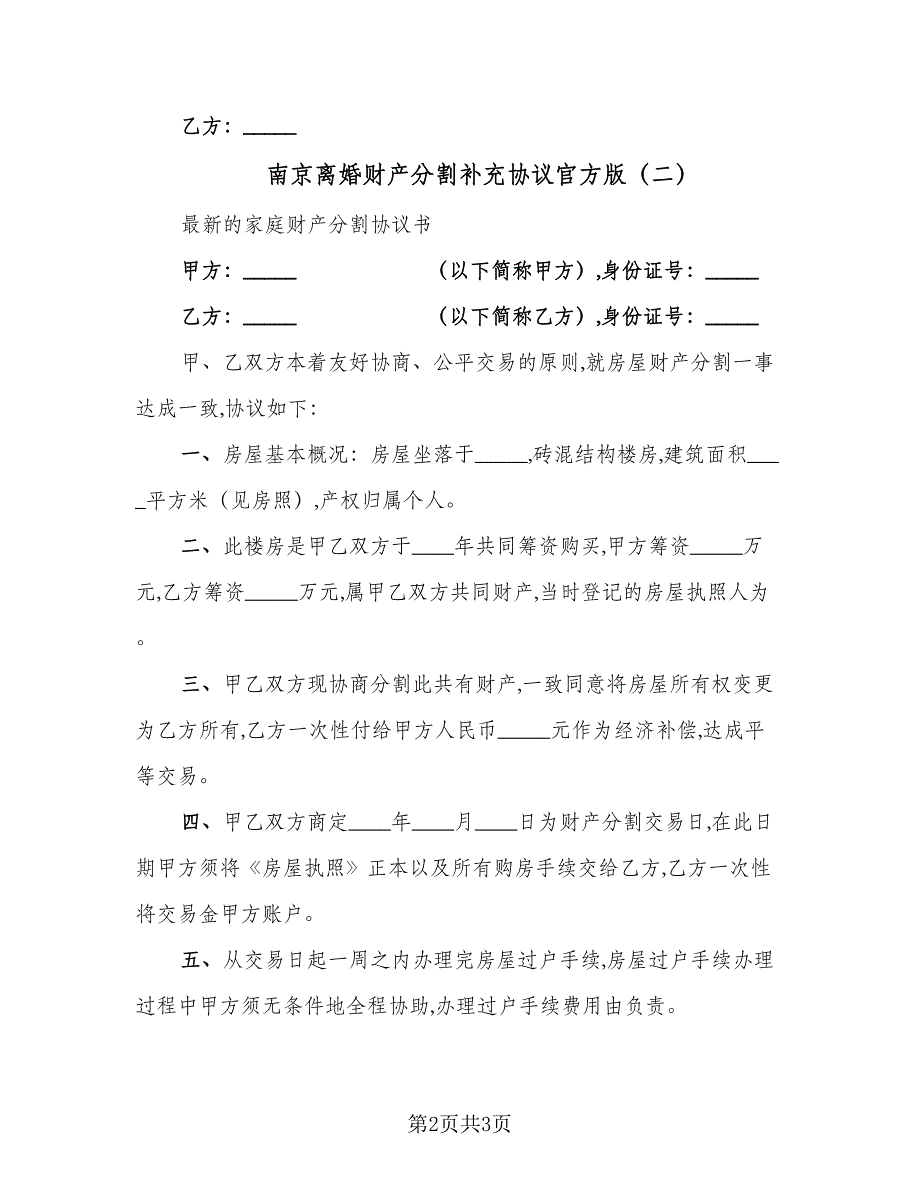 乙方：_____
南京离婚财产分割补充协议官方版（二）
最新的家庭财产分割协议书
甲方：_____ （以下简称甲方）,身份证号：_____
乙方：_____ （以下简称乙方）,身份证号：_____
甲、乙双方本着友好协商、公平交易的原则,就房屋财产分割一事
达成一致,协议如下：
一、房屋基本概况：房屋坐落于_____,砖混结构楼房,建筑面积___
_平方米（见房照）,产权归属个人。
二、此楼房是甲乙双方于____年共同筹资购买,甲方筹资_____万
元,乙方筹资_____万元,属甲乙双方共同财产,当时登记的房屋执照人为
。
三、甲乙双方现协商分割此共有财产,一致同意将房屋所有权变更
为乙方所有,乙方一次性付给甲方人民币_____元作为经济补偿,达成平
等交易。
四、甲乙双方商定____年____月____日为财产分割交易日,在此日
期甲方须将《房屋执照》正本以及所有购房手续交给乙方,乙方一次性
将交易金甲方账户。
五、从交易日起一周之内办理完房屋过户手续,房屋过户手续办理
过程中甲方须无条件地全程协助,办理过户手续费用由负责。
第2页共3页